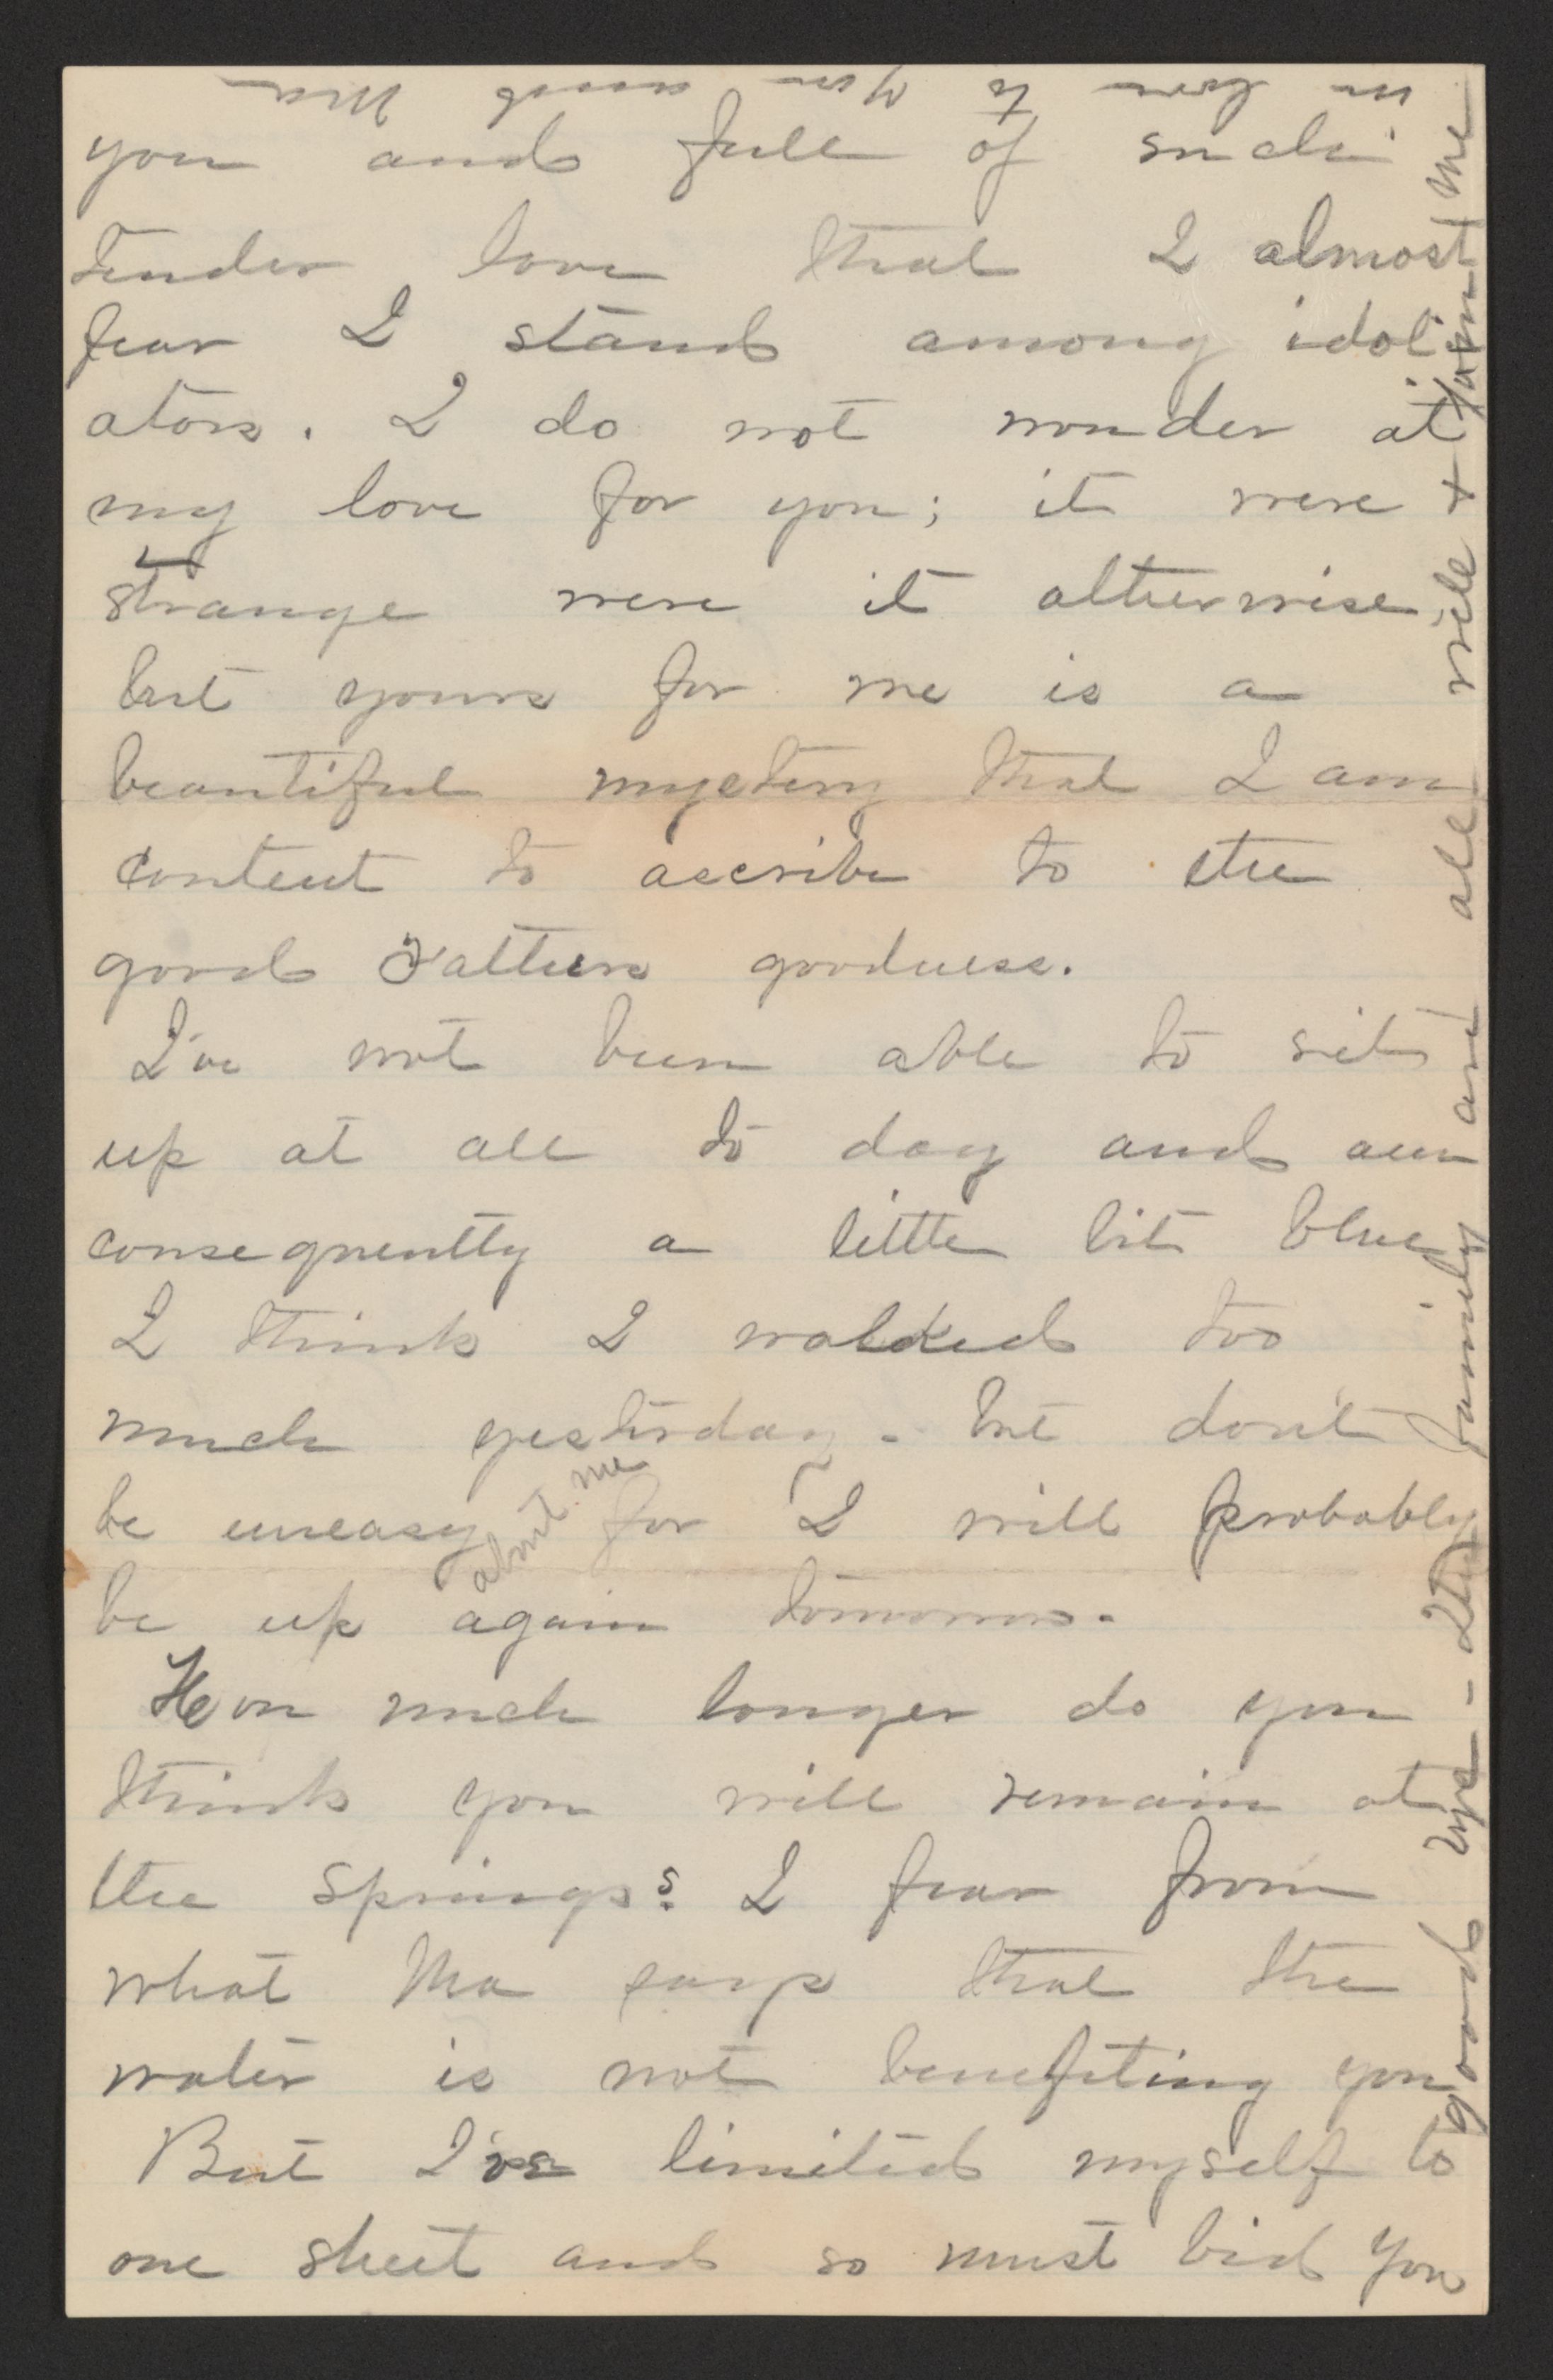 you and full of such
tender love that I almost
fear I stand among idol
ators. I do not wonder at
my love for you; it were
strange were it otherwise
but yours for me is a
beautiful mystery that I am
content to ascribe to the
good Fathers goodness.
I've not been able to sit
up at all to day and am
consequently a little bit blue
I think I walked too
much yesterday - but don't
be uneasy about me for I will probably
be up again tomorrow.
How much longer do you
think you will remain at
the Springs? I fear from
what Ma says that the
water is not benefiting you
But I've limited myself to
one sheet and so must bid you
good bye - The family are all well & join me
in love to you and Ma